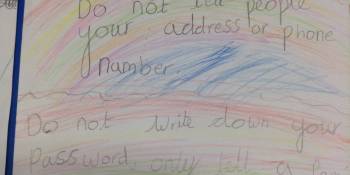 Do not tell people
your address or phone
number.
Do not write down your
Password, only tell a